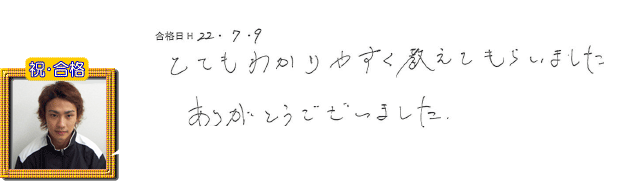 合格日 H 22・7・9
とてもわかりやすく教えてもらいました
ありがとうございました.
祝・合格